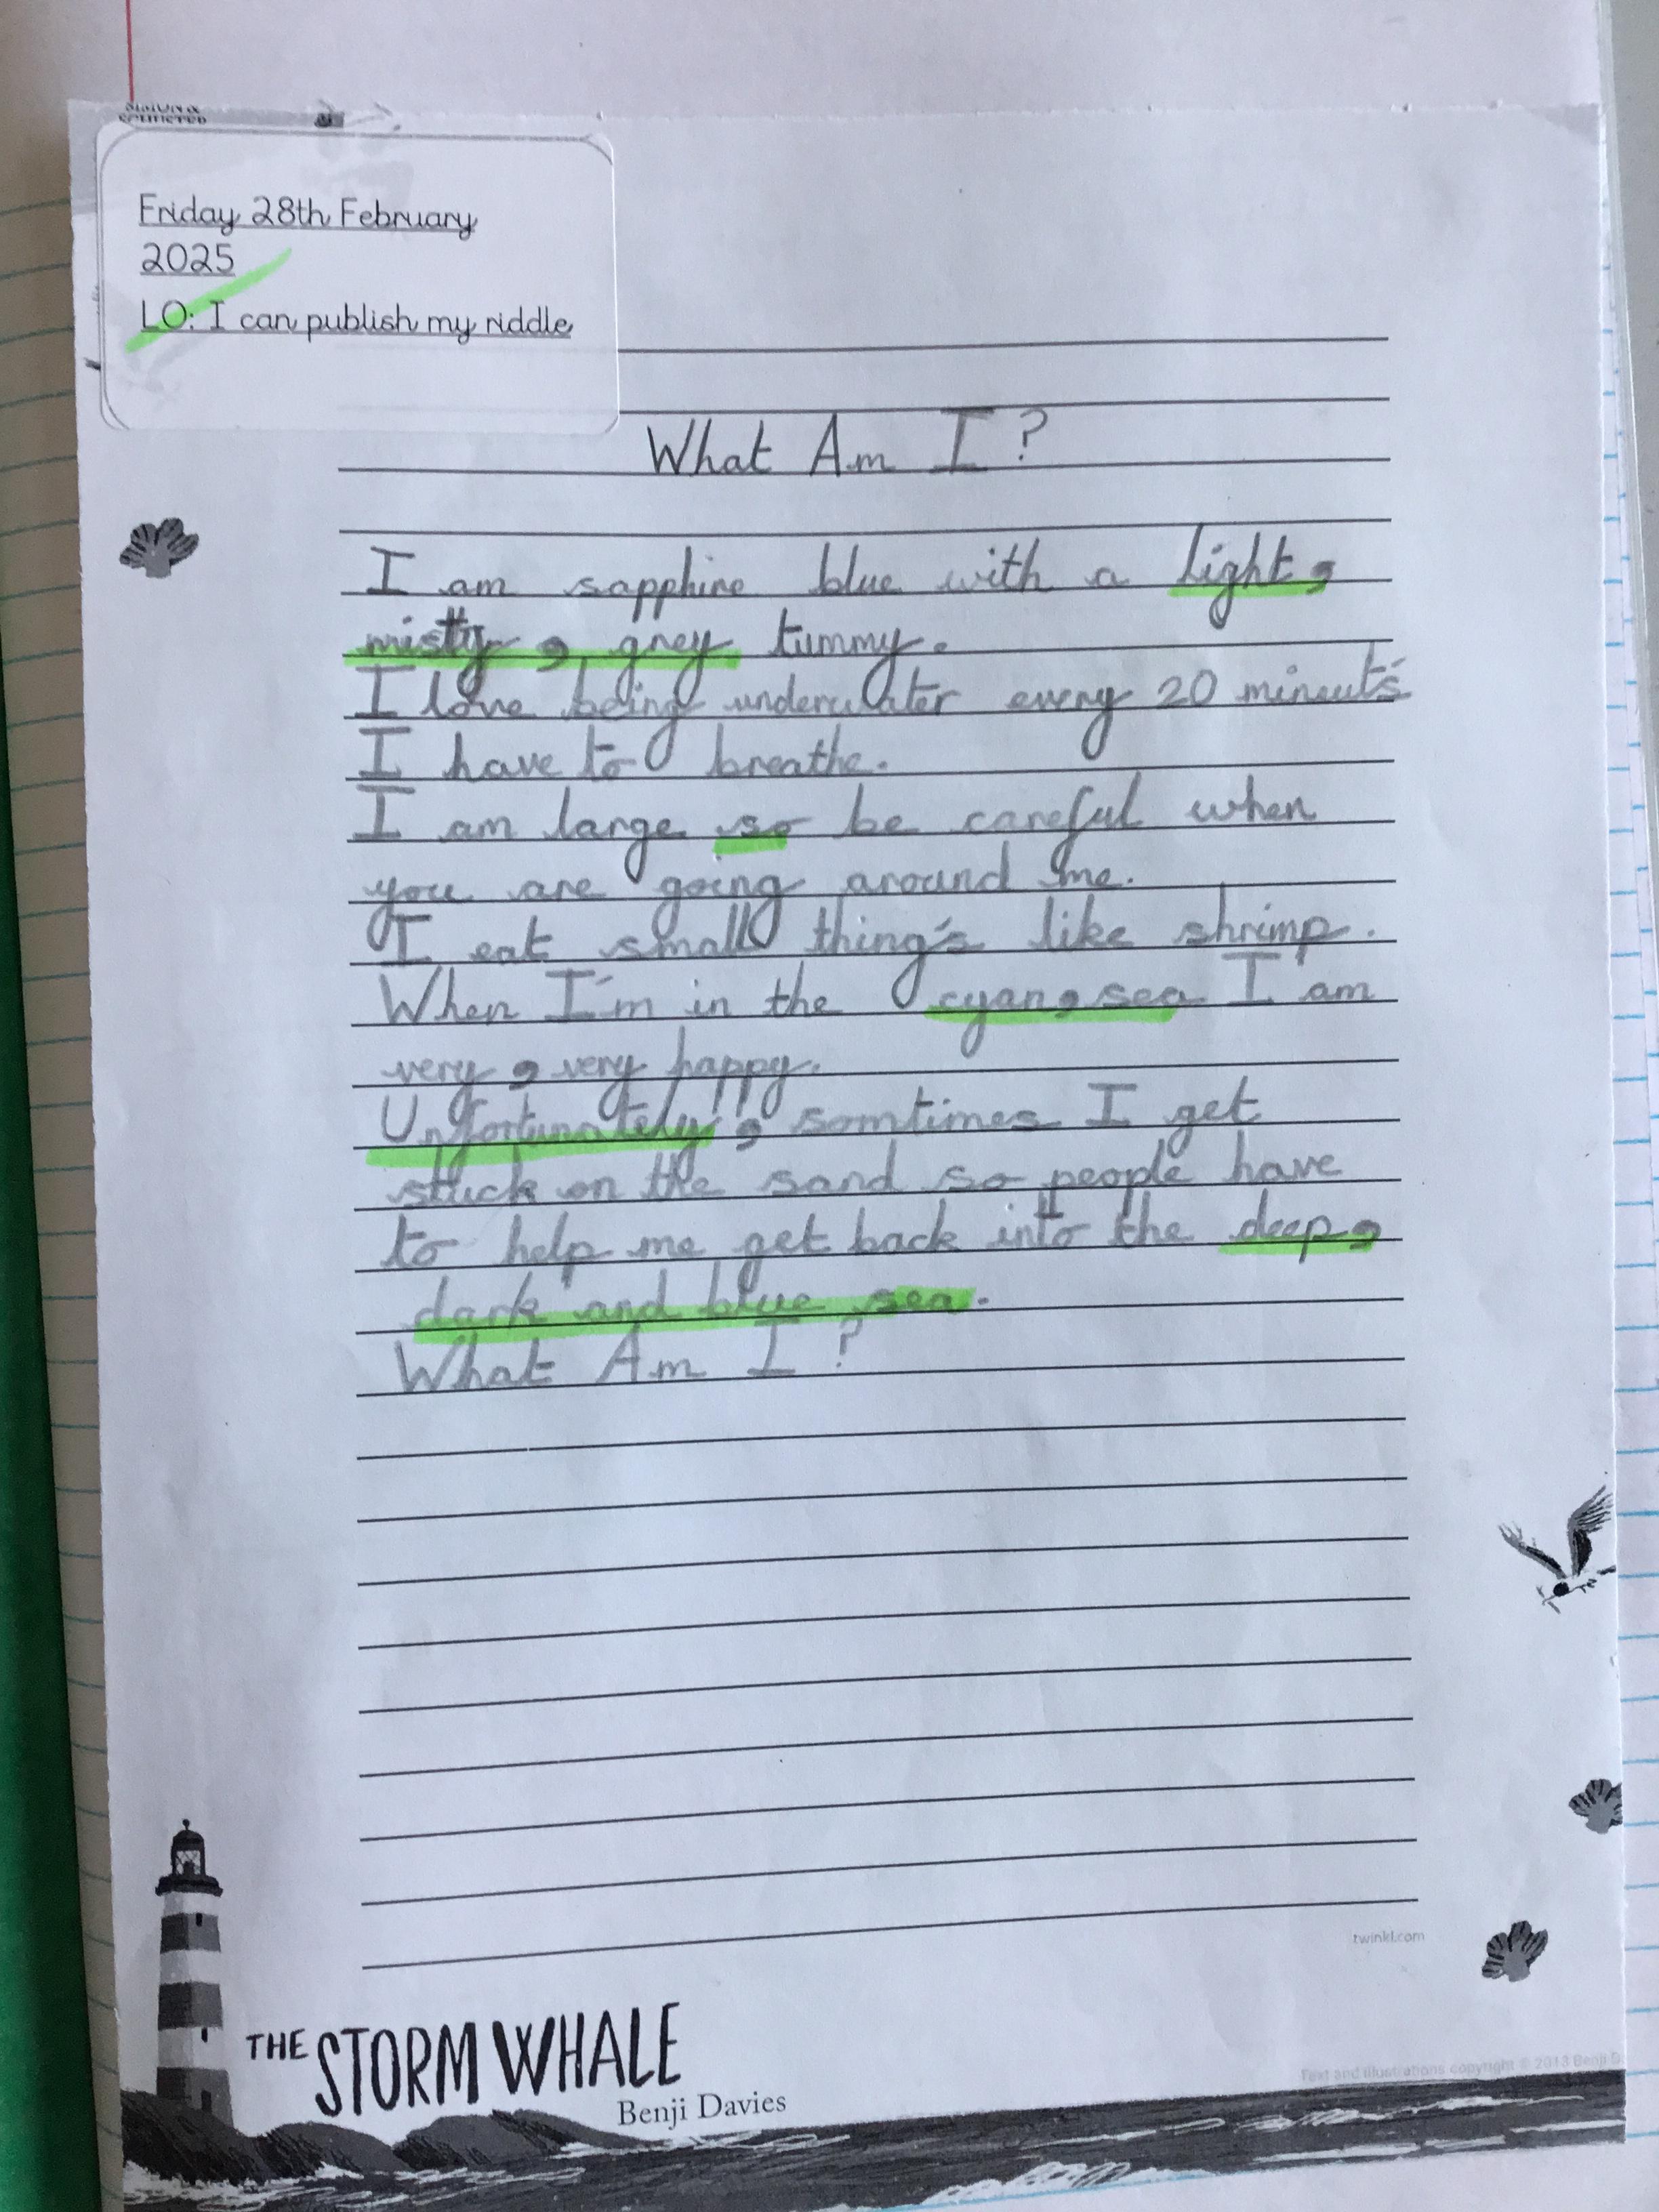 Friday 28th February
2025
LO: I can publish my riddle
What Am I?
I am sapphire blue with a light,
misty, grey tummy.
I love being underwater every 20 mineut's
I have to breathe.
I am large so be careful when
you are going around me.
I eat small thing's like shrimp.
When I'm in the cyan, sea I am
very, very happy.
Unfortunately, somtimes I get
stuck on the sand so people have
to help me get back into the deep,
dark and blue sea.
What Am I?
twinkl.com
Text and illustrations copyright © 2013 Benji
THE STORM WHALE
Benji Davies